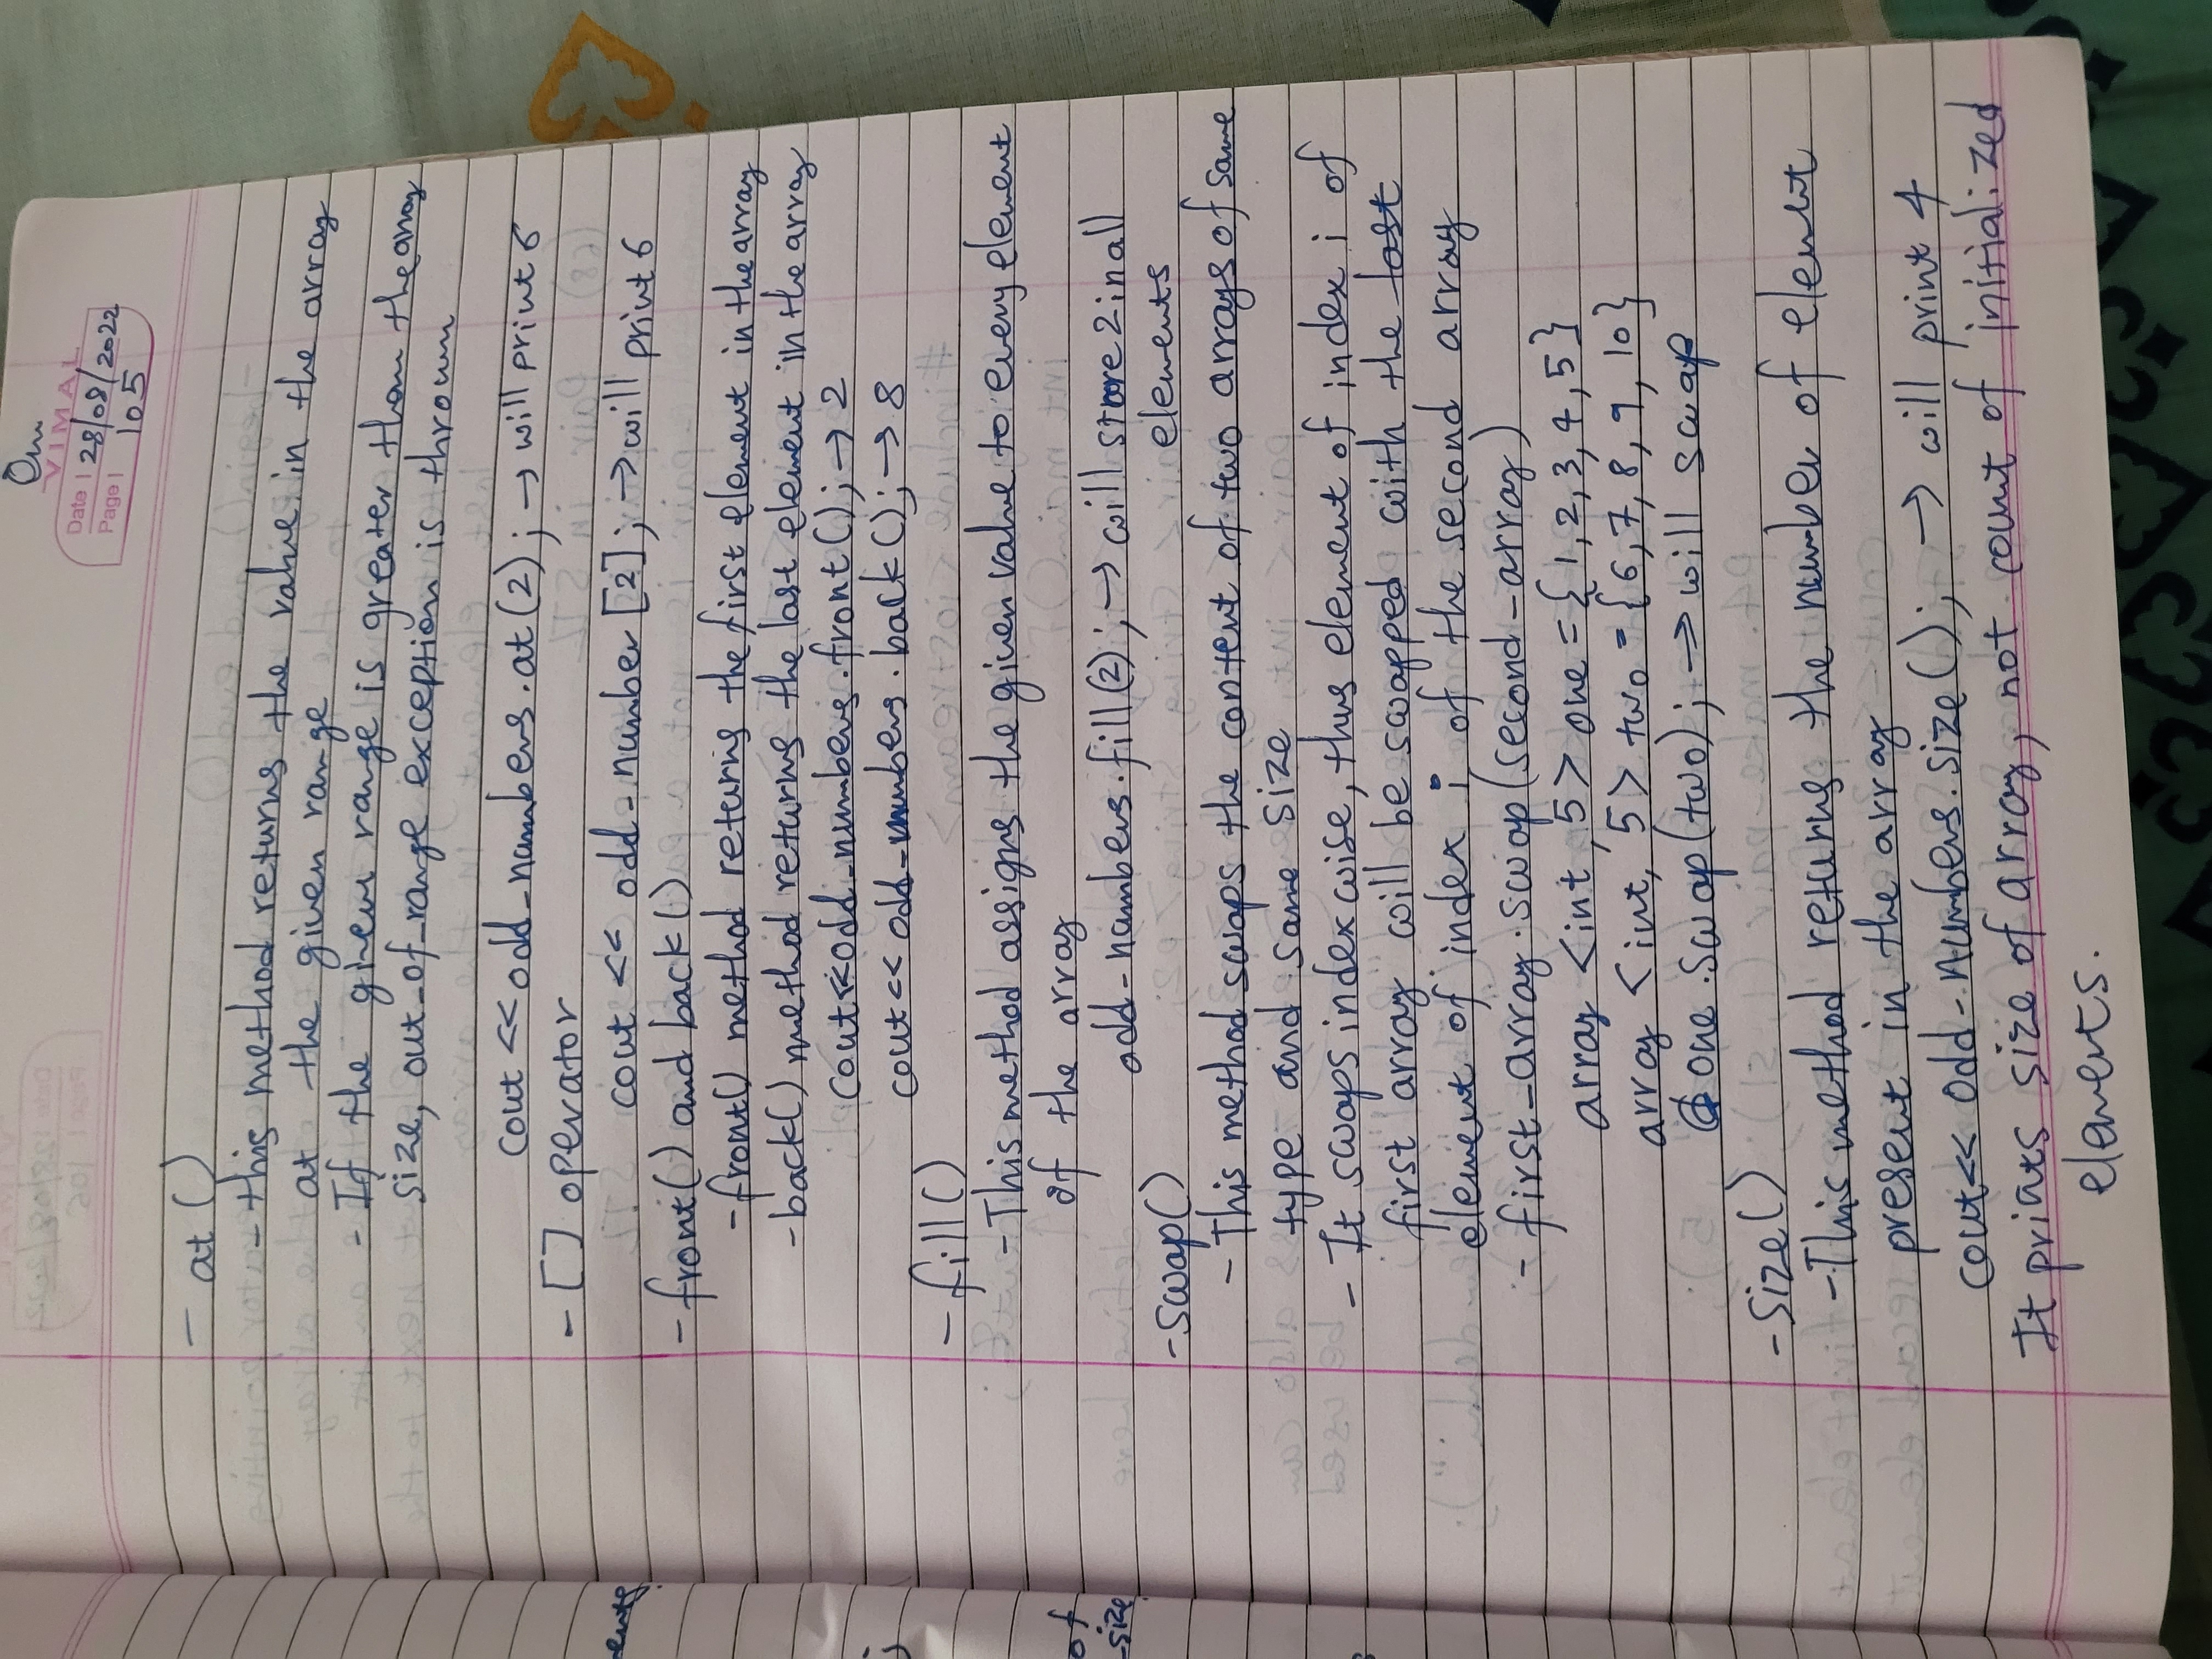 Om
VIMAL
Date | 28/08/2022
Page | 105
- at ()
- this method returns the value in the array
at the given range
- If the given range is greater than the array
size, out_of_range exception is thrown
cout << odd_numbers.at(2); → will print 6
- [] operator
cout << odd_number[2]; → will print 6
- front() and back()
- front() method returns the first element in the array
- back() method returns the last element in the array
cout << odd_numbers.front(); → 2
cout << odd_numbers.back(); → 8
- fill()
- This method assigns the given value to every element
of the array
odd_numbers.fill(2); → will store 2 in all
elements
- swap()
- This method swaps the content of two arrays of same
type and same size
- It swaps index wise, thus element of index i of
first array will be swapped with the last
element of index i of the second array
- first_array.swap(second_array)
array <int, 5> one = {1, 2, 3, 4, 5}
array <int, 5> two = {6, 7, 8, 9, 10}
one.swap(two); → will swap
- size()
- This method returns the number of element
present in the array
cout << odd_numbers.size(); → will print 4
It prints size of array, not count of initialized
elements.
of
size